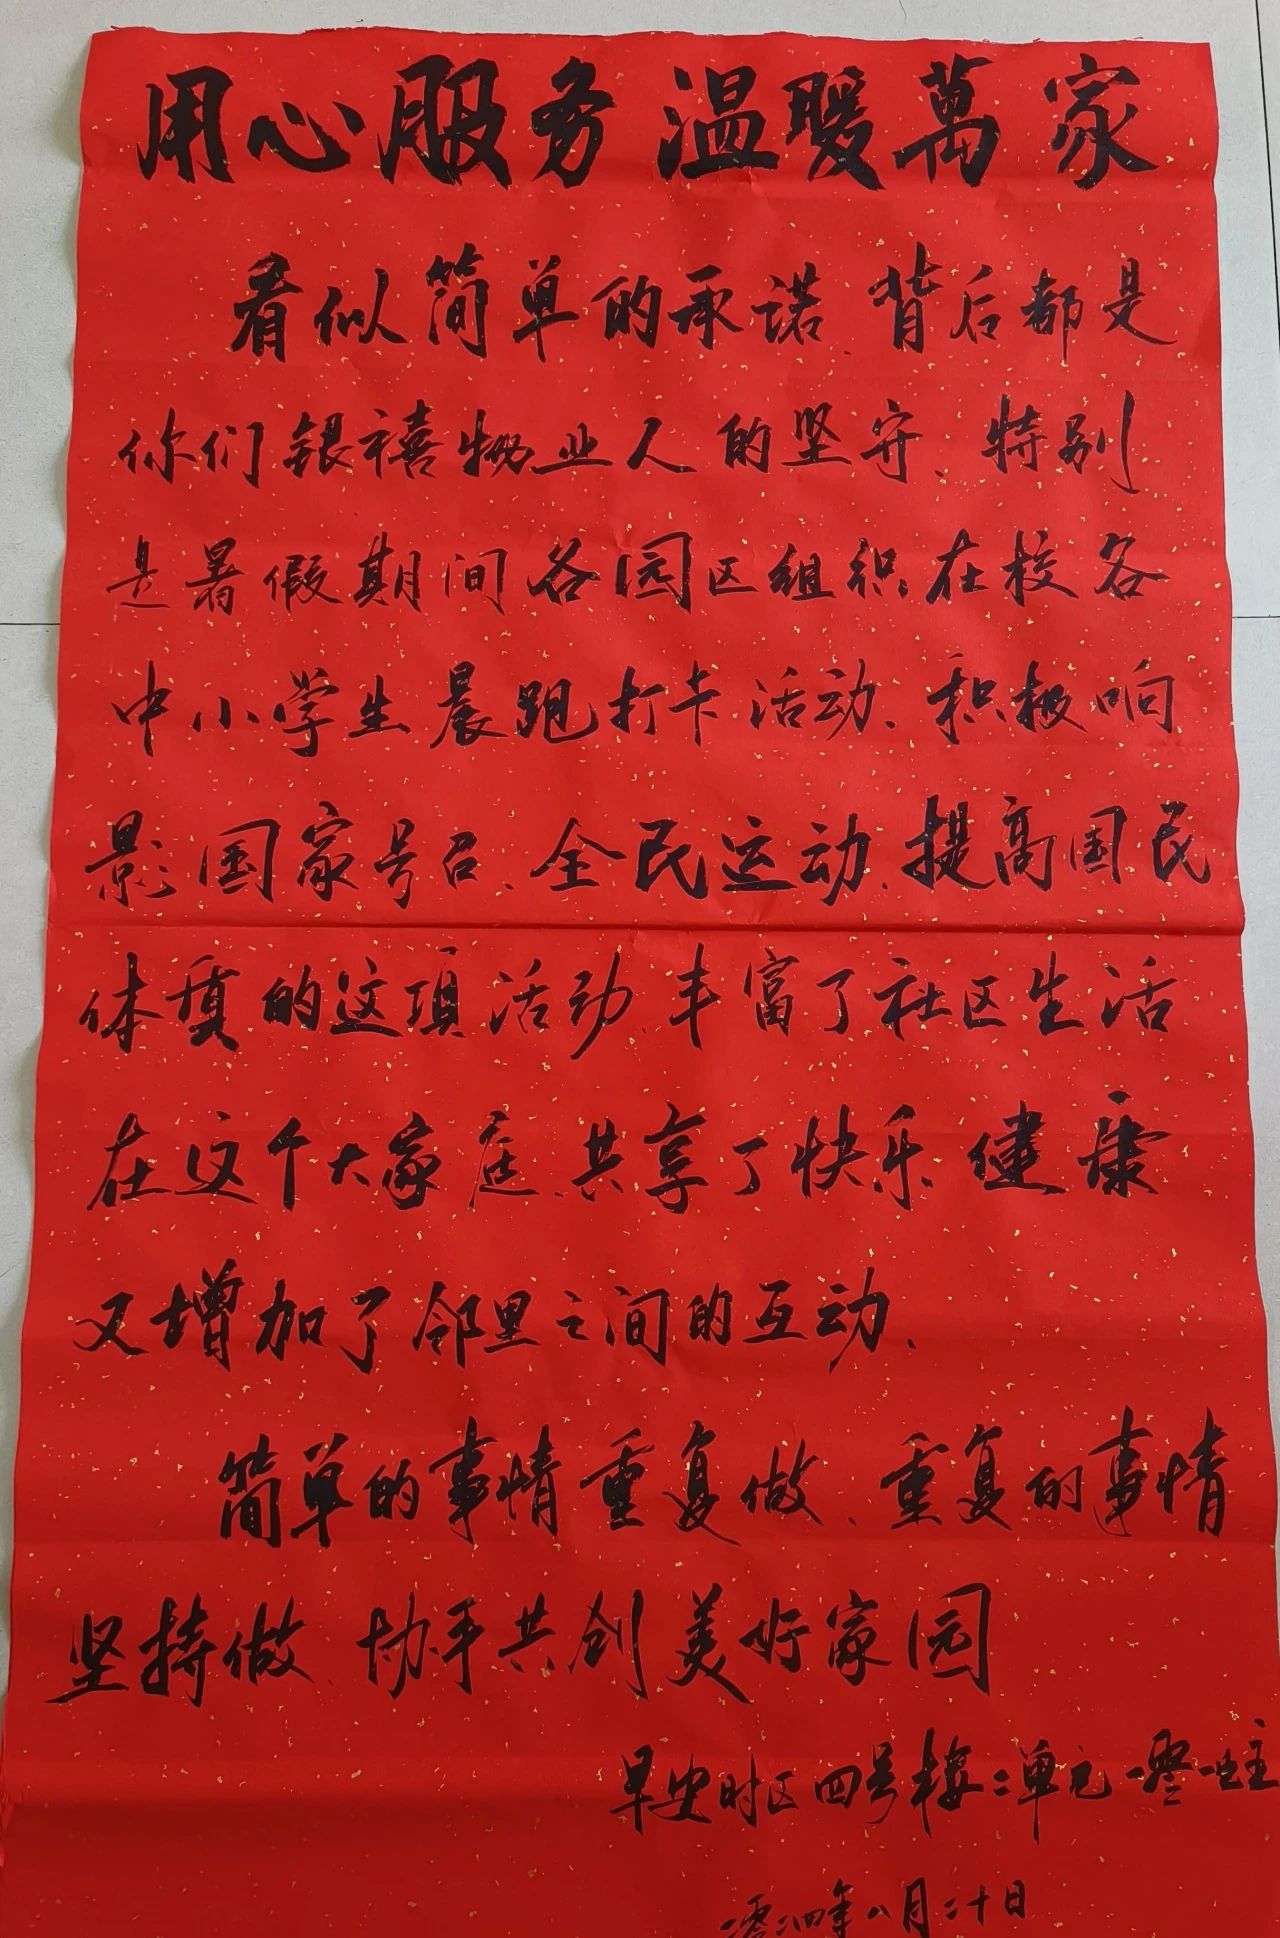 用心服务 温暖萬家
看似简单的承诺、背后都是
你们银禧物业人的坚守、特别
是暑假期间各园区组织在校各
中小学生晨跑打卡活动、积极响
影国家号召、全民运动、提高国民
体质的这项活动、丰富了社区生活
在这个大家庭、共享了快乐健康
又增加了邻里之间的互动、
简单的事情重复做、重复的事情
坚持做、协手共创美好家园
早安时区四号楼二单元一零一业主
二零二四年八月二十日